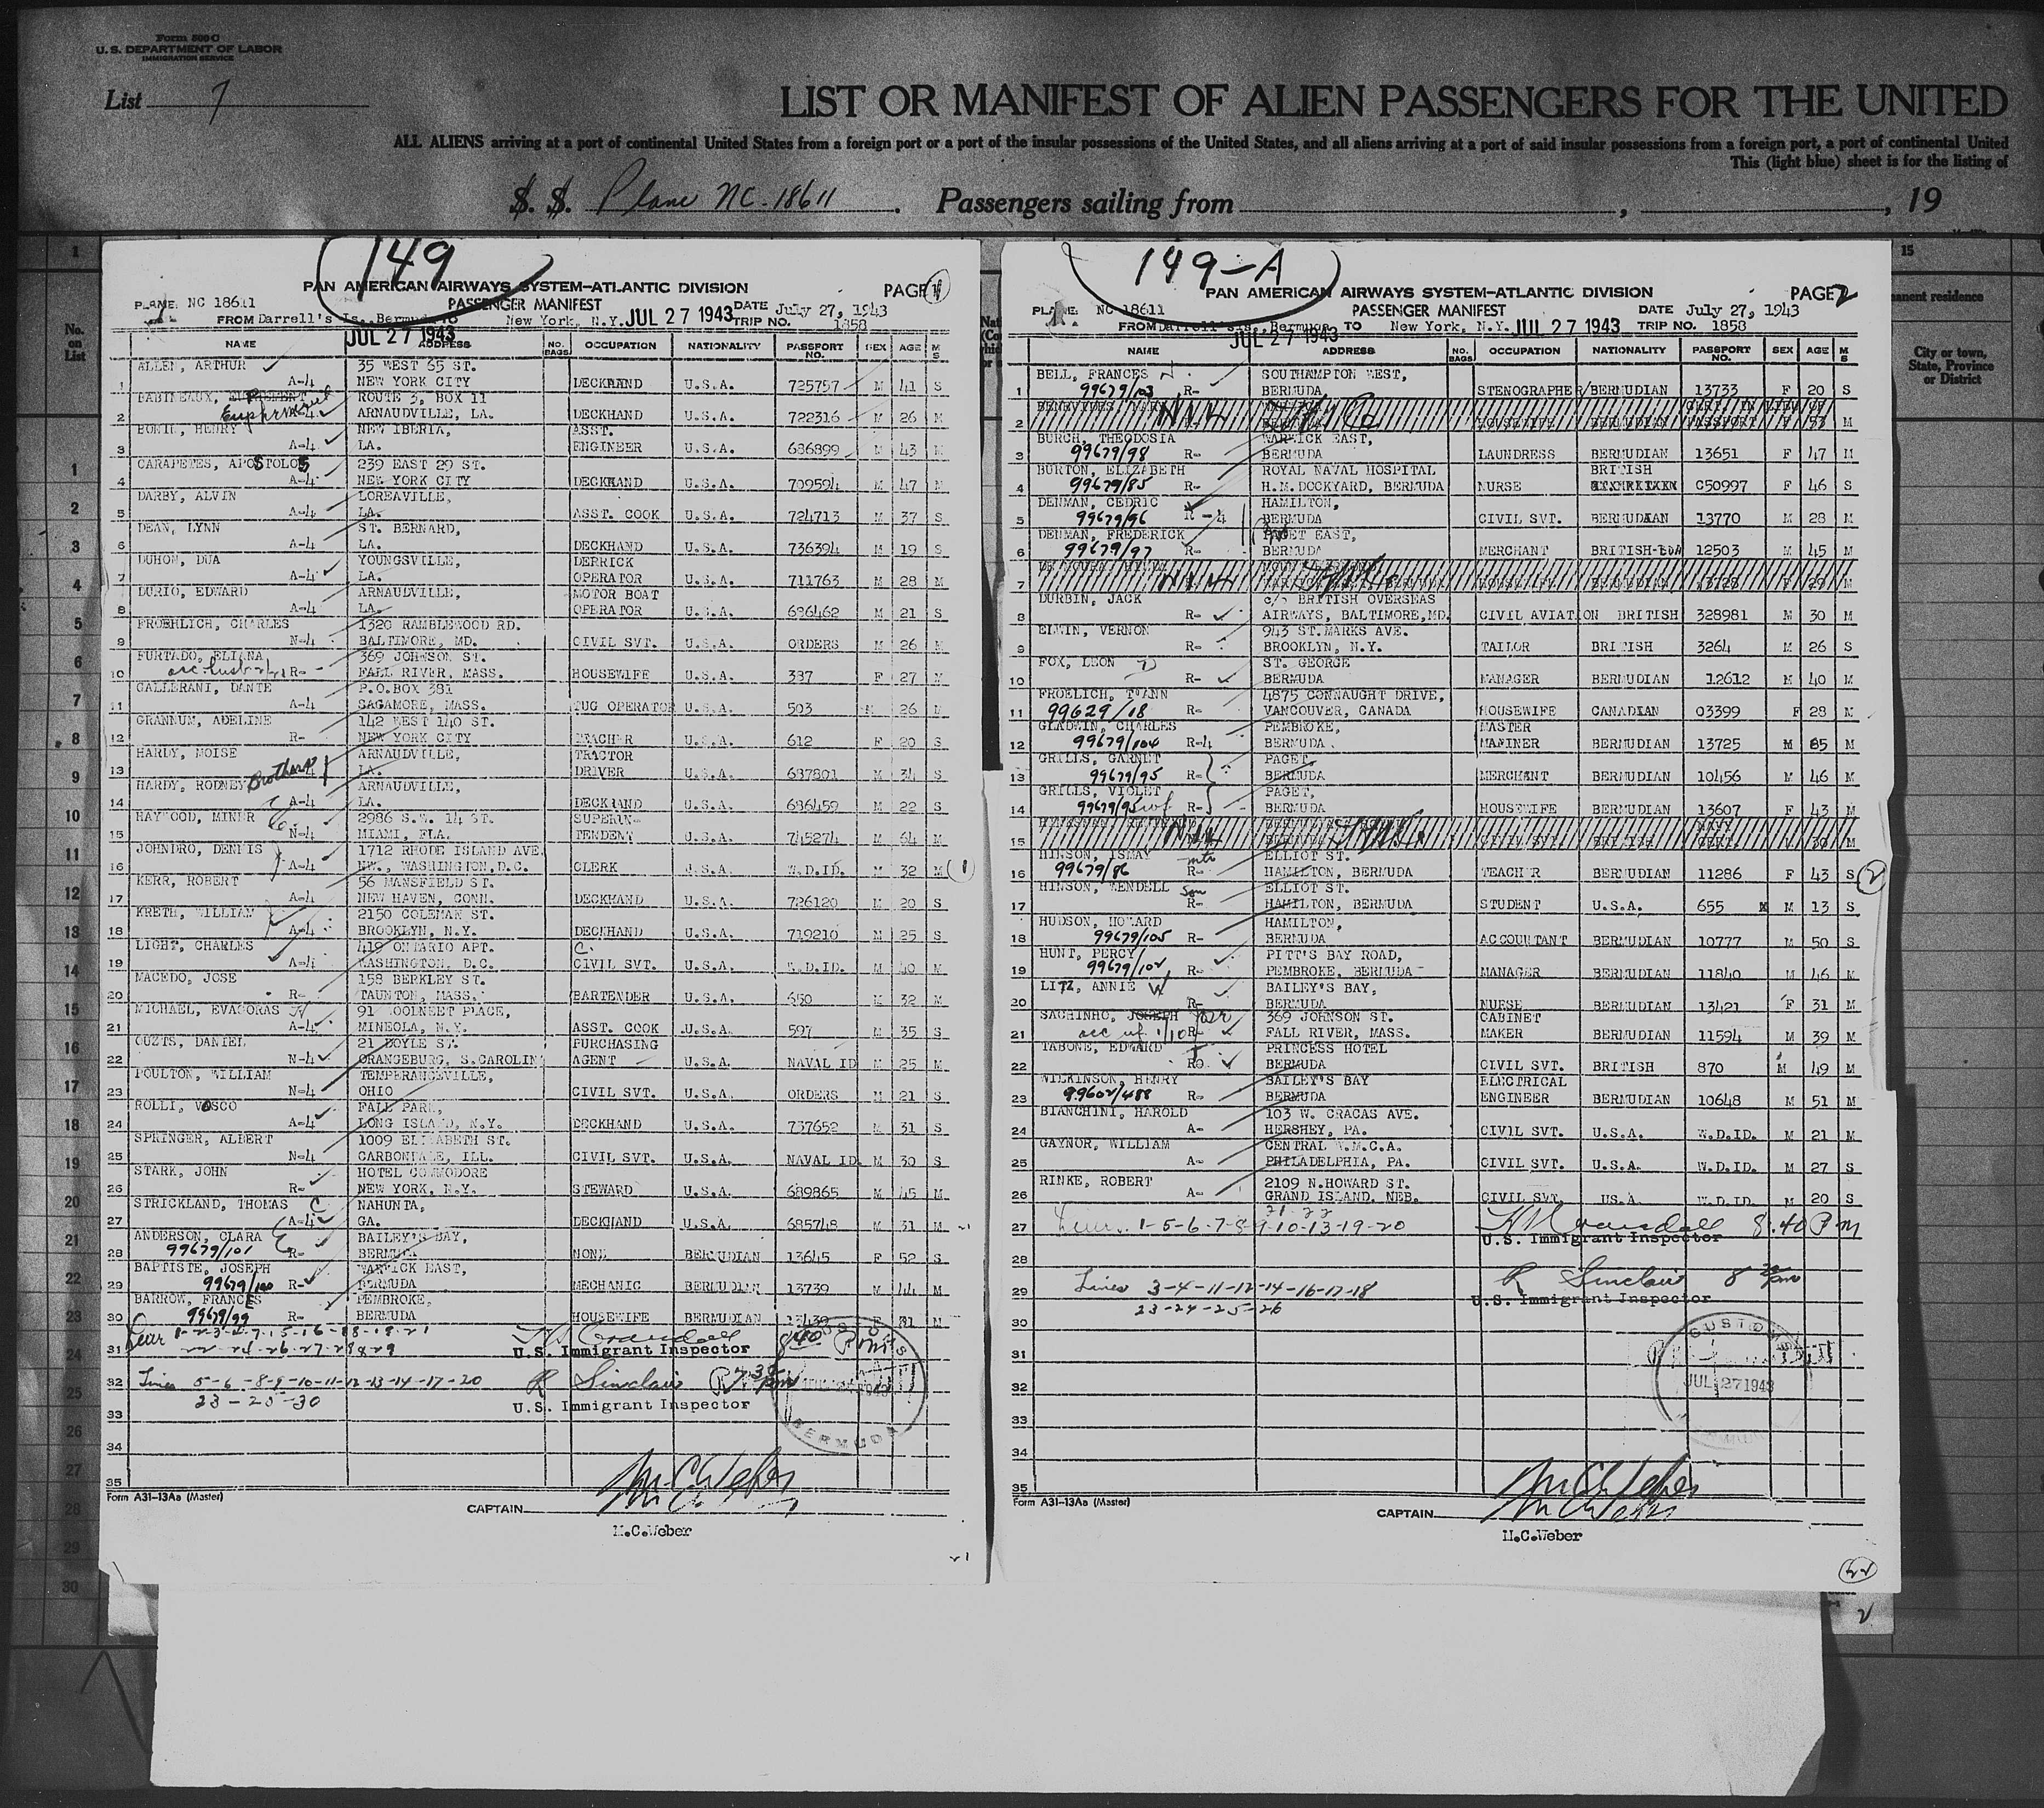 Form 500 C
U. S. DEPARTMENT OF LABOR
IMMIGRATION SERVICE
List 7
LIST OR MANIFEST OF ALIEN PASSENGERS FOR THE UNITED
ALL ALIENS arriving at a port of continental United States from a foreign port or a port of the insular possessions of the United States, and all aliens arriving at a port of said insular possessions from a foreign port, a port of continental United
This (light blue) sheet is for the listing of
S. S. Plane NC-18611. Passengers sailing from , , 19
149
PAN AMERICAN AIRWAYS SYSTEM-ATLANTIC DIVISION PAGE 1
PLANE NC 18611 PASSENGER MANIFEST DATE July 27, 1943
FROM Darrell's Is. Bermuda TO New York, N.Y. JUL 27 1943 TRIP NO. 1858
JUL 27 1943
NAME ADDRESS NO. BAGS OCCUPATION NATIONALITY PASSPORT NO. SEX AGE M S
ALLEN, ARTHUR 35 WEST 65 ST.
1 A-4 NEW YORK CITY DECKHAND U.S.A. 725757 M 41 S
BABINEAUX, ROUTE 3, BOX 11
2 A-4 ARNAUDVILLE, LA. DECKHAND U.S.A. 722316 M 26 M
BOWIN, HENRY NEW IBERIA, ASST.
3 A-4 LA. ENGINEER U.S.A. 686899 M 43 M
CARAPETES, APOSTOLOS 239 EAST 29 ST.
4 A-4 NEW YORK CITY DECKHAND U.S.A. 709594 M 47 M
DARBY, ALVIN LOREAVILLE,
5 A-4 LA. ASST. COOK U.S.A. 724713 M 37 S
DEAN, LYNN ST. BERNARD,
6 A-4 LA. DECKHAND U.S.A. 736394 M 19 S
DUHON, DUA YOUNGSVILLE, DERRICK
7 A-4 LA. OPERATOR U.S.A. 711763 M 28 M
DURIO, EDWARD ARNAUDVILLE, MOTOR BOAT
8 A-4 LA. OPERATOR U.S.A. 686462 M 21 S
FROEHLICH, CHARLES 1320 RAMBLEWOOD RD.
9 N-4 BALTIMORE, MD. CIVIL SVT. U.S.A. ORDERS M 26 M
FURTADO, ELIANA 369 JOHNSON ST.
10 R- FALL RIVER, MASS. HOUSEWIFE U.S.A. 387 F 27 M
GALLERANI, DANTE P.O.BOX 381
11 A-4 SAGAMORE, MASS. TUG OPERATOR U.S.A. 503 M 26 M
GRANNUM, ADELINE 142 WEST 140 ST.
12 R- NEW YORK CITY TEACHER U.S.A. 612 F 20 S
HARDY, MOISE ARNAUDVILLE, TRACTOR
13 Brothers LA. DRIVER U.S.A. 687801 M 34 S
HARDY, RODNEY ARNAUDVILLE,
14 A-4 LA. DECKHAND U.S.A. 686459 M 22 S
HAYWOOD, MINER 2986 S.W. 14 ST. SUPERIN-
15 N-4 MIAMI, FLA. TENDENT U.S.A. 745274 M 64 M
JOHNDRO, DENNIS 1712 RHODE ISLAND AVE.
16 A-4 NW., WASHINGTON,D.C. CLERK U.S.A. W.D.ID. M 32 M
KERR, ROBERT 56 MANSFIELD ST.
17 A-4 NEW HAVEN, CONN. DECKHAND U.S.A. 726120 M 20 S
KRETH, WILLIAM 2150 COLEMAN ST.
18 A-4 BROOKLYN, N.Y. DECKHAND U.S.A. 719210 M 25 S
LIGHT, CHARLES 419 ONTARIO APT.
19 A-4 WASHINGTON, D.C. CIVIL SVT. U.S.A. W.D.ID. M 40 M
MACEDO, JOSE 158 BERKLEY ST.
20 R- TAUNTON, MASS. BARTENDER U.S.A. 650 M 32 M
MICHAEL, EVAGORAS 91 PLACE,
21 A-4 MINEOLA, N.Y. ASST. COOK U.S.A. 597 M 35 S
OUZTS, DANIEL 21 DOYLE ST. PURCHASING
22 N-4 ORANGEBURG, S.CAROLIN AGENT U.S.A. NAVAL ID M 25 M
POULTON, WILLIAM TEMPERANCEVILLE,
23 N-4 OHIO CIVIL SVT. U.S.A. ORDERS M 21 S
ROLLI, VASCO FALL PARK,
24 A-4 LONG ISLAND, N.Y. DECKHAND U.S.A. 737652 M 31 S
SPRINGER, ALBERT 1009 ELIZABETH ST.
25 N-4 CARBONDALE, ILL. CIVIL SVT. U.S.A. NAVAL ID. M 30 S
STARK, JOHN HOTEL COMMODORE
26 R- NEW YORK, N.Y. STEWARD U.S.A. 689865 M 45 M
STRICKLAND, THOMAS C NAHUNTA,
27 A-4 GA. DECKHAND U.S.A. 685748 M 31 M
ANDERSON, CLARA BAILEY'S BAY,
28 99679/101 R- BERMUDA NONE BERMUDIAN 13645 F 52 S
BAPTISTE, JOSEPH WARWICK EAST,
29 99679/100 R- BERMUDA MECHANIC BERMUDIAN 13739 M 44 M
BARROW, FRANCES PEMBROKE,
30 99679/99 R- BERMUDA HOUSEWIFE BERMUDIAN 13439 F 31 M
31 U.S. Immigrant Inspector 8 40 Pm
32 Lines 5-6-8-9-10-11-12-13-14-17-20 R Sinclair
23-25-30 U.S. Immigrant Inspector
33
34
35
Form A31-13Aa (Master)
CAPTAIN M C Weber
M.C.Weber
149-A
PAN AMERICAN AIRWAYS SYSTEM-ATLANTIC DIVISION PAGE 2
PLANE NC 18611 PASSENGER MANIFEST DATE July 27, 1943
FROM Darrell's Is., Bermuda TO New York, N.Y. JUL 27 1943 TRIP NO. 1858
JUL 27 1943
NAME ADDRESS NO. BAGS OCCUPATION NATIONALITY PASSPORT NO. SEX AGE M S
BELL, FRANCES SOUTHAMPTON WEST,
1 99679/103 R- BERMUDA STENOGRAPHER BERMUDIAN 13733 F 20 S
2 HOUSEWIFE BERMUDIAN PASSPORT F 53 M
BURCH, THEODOSIA WARWICK EAST,
3 99679/98 R- BERMUDA LAUNDRESS BERMUDIAN 13651 F 47 M
BURTON, ELIZABETH ROYAL NAVAL HOSPITAL BRITISH
4 99679/85 R- H.M.DOCKYARD, BERMUDA NURSE C50997 F 46 S
DENMAN, CEDRIC HAMILTON,
5 99679/96 R-4 BERMUDA CIVIL SVT. BERMUDIAN 13770 M 28 M
DENMAN, FREDERICK PAGET EAST,
6 99679/97 R- BERMUDA MERCHANT BRITISH-BDA 12503 M 45 M
7 HOUSEWIFE BERMUDIAN 13728 F 29 M
DURBIN, JACK c/o BRITISH OVERSEAS
8 R- AIRWAYS, BALTIMORE,MD. CIVIL AVIATION BRITISH 328981 M 30 M
ELWIN, VERNON 943 ST.MARKS AVE.
9 R- BROOKLYN, N.Y. TAILOR BRITISH 3264 M 26 S
FOX, LEON ST. GEORGE
10 R- BERMUDA MANAGER BERMUDIAN 12612 M 40 M
FROELICH, 4875 CONNAUGHT DRIVE,
11 99629/18 R- VANCOUVER, CANADA HOUSEWIFE CANADIAN 03399 F 28 M
GLADWIN, CHARLES PEMBROKE, MASTER
12 99679/104 R-4 BERMUDA MARINER BERMUDIAN 13725 M 65 M
GRILLS, GARNET PAGET,
13 99679/95 R- BERMUDA MERCHANT BERMUDIAN 10456 M 46 M
GRILLS, VIOLET PAGET,
14 99679/95 wf R- BERMUDA HOUSEWIFE BERMUDIAN 13607 F 43 M
15 CIVIL SVT. BRITISH M 30 M
HINSON, ISMAY ELLIOT ST.
16 99679/86 HAMILTON, BERMUDA TEACHER BERMUDIAN 11286 F 43 S
HINSON, WENDELL Son ELLIOT ST.
17 R- HAMILTON, BERMUDA STUDENT U.S.A. 655 M 13 S
HUDSON, HOWARD HAMILTON,
18 99679/105 R- BERMUDA ACCOUNTANT BERMUDIAN 10777 M 50 S
HUNT, PERCY PITT'S BAY ROAD,
19 99679/102 R- PEMBROKE, BERMUDA MANAGER BERMUDIAN 11840 M 46 M
LITZ, ANNIE W BAILEY'S BAY,
20 R- BERMUDA NURSE BERMUDIAN 13421 F 31 M
SACHINHO, JOSEPH 369 JOHNSON ST. CABINET
21 acc wf 1/10 R- FALL RIVER, MASS. MAKER BERMUDIAN 11594 M 39 M
TABONE, EDWARD PRINCESS HOTEL
22 R- BERMUDA CIVIL SVT. BRITISH 870 M 49 M
WILKINSON, HENRY BAILEY'S BAY ELECTRICAL
23 99602/488 R- BERMUDA ENGINEER BERMUDIAN 10648 M 51 M
BIANCHINI, HAROLD 103 W. CRACAS AVE.
24 A- HERSHEY, PA. CIVIL SVT. U.S.A. W.D.ID. M 21 M
GAYNOR, WILLIAM CENTRAL Y.M.C.A.
25 A- PHILADELPHIA, PA. CIVIL SVT. U.S.A. W.D.ID. M 27 S
RINKE, ROBERT 2109 N.HOWARD ST.
26 A- GRAND ISLAND, NEB. CIVIL SVT. US.A. W.D.ID. M 20 S
21-22
27 1-5-6-7-8-9-10-13-19-20 8:40 Pm
U.S. Immigrant Inspector
28
29 Lines 3-4-11-12-14-16-17-18 R Sinclair
23-24-25-26 U.S. Immigrant Inspector
30
31
32
33
34
35
CUSTOMS
JUL 27 1943
Form A31-13Aa (Master)
CAPTAIN M C Weber
M.C.Weber